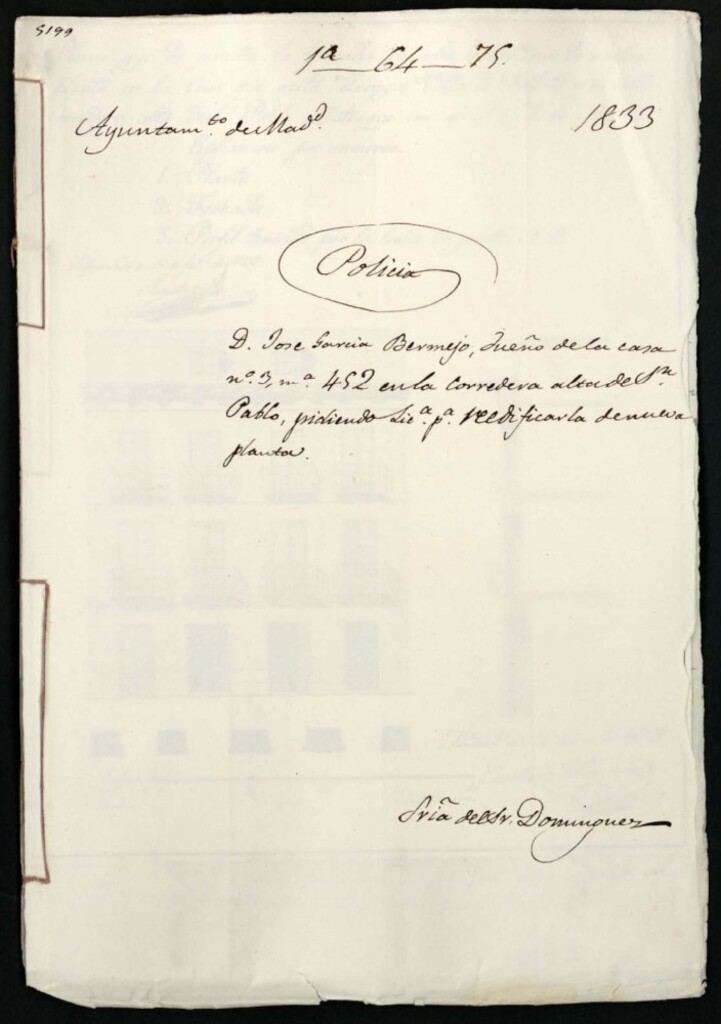 5199
1ª — 64 — 75.
Ayuntam.to de Mad.d
1833
Policia
D. Jose Garcia Bermejo, dueño de la casa
nº. 3, m.ª 452 en la Corredera alta de S.n
Pablo, pidiendo Lic.ª p.ª reedificarla de nueva
planta.
Sria del Sr. Dominguez